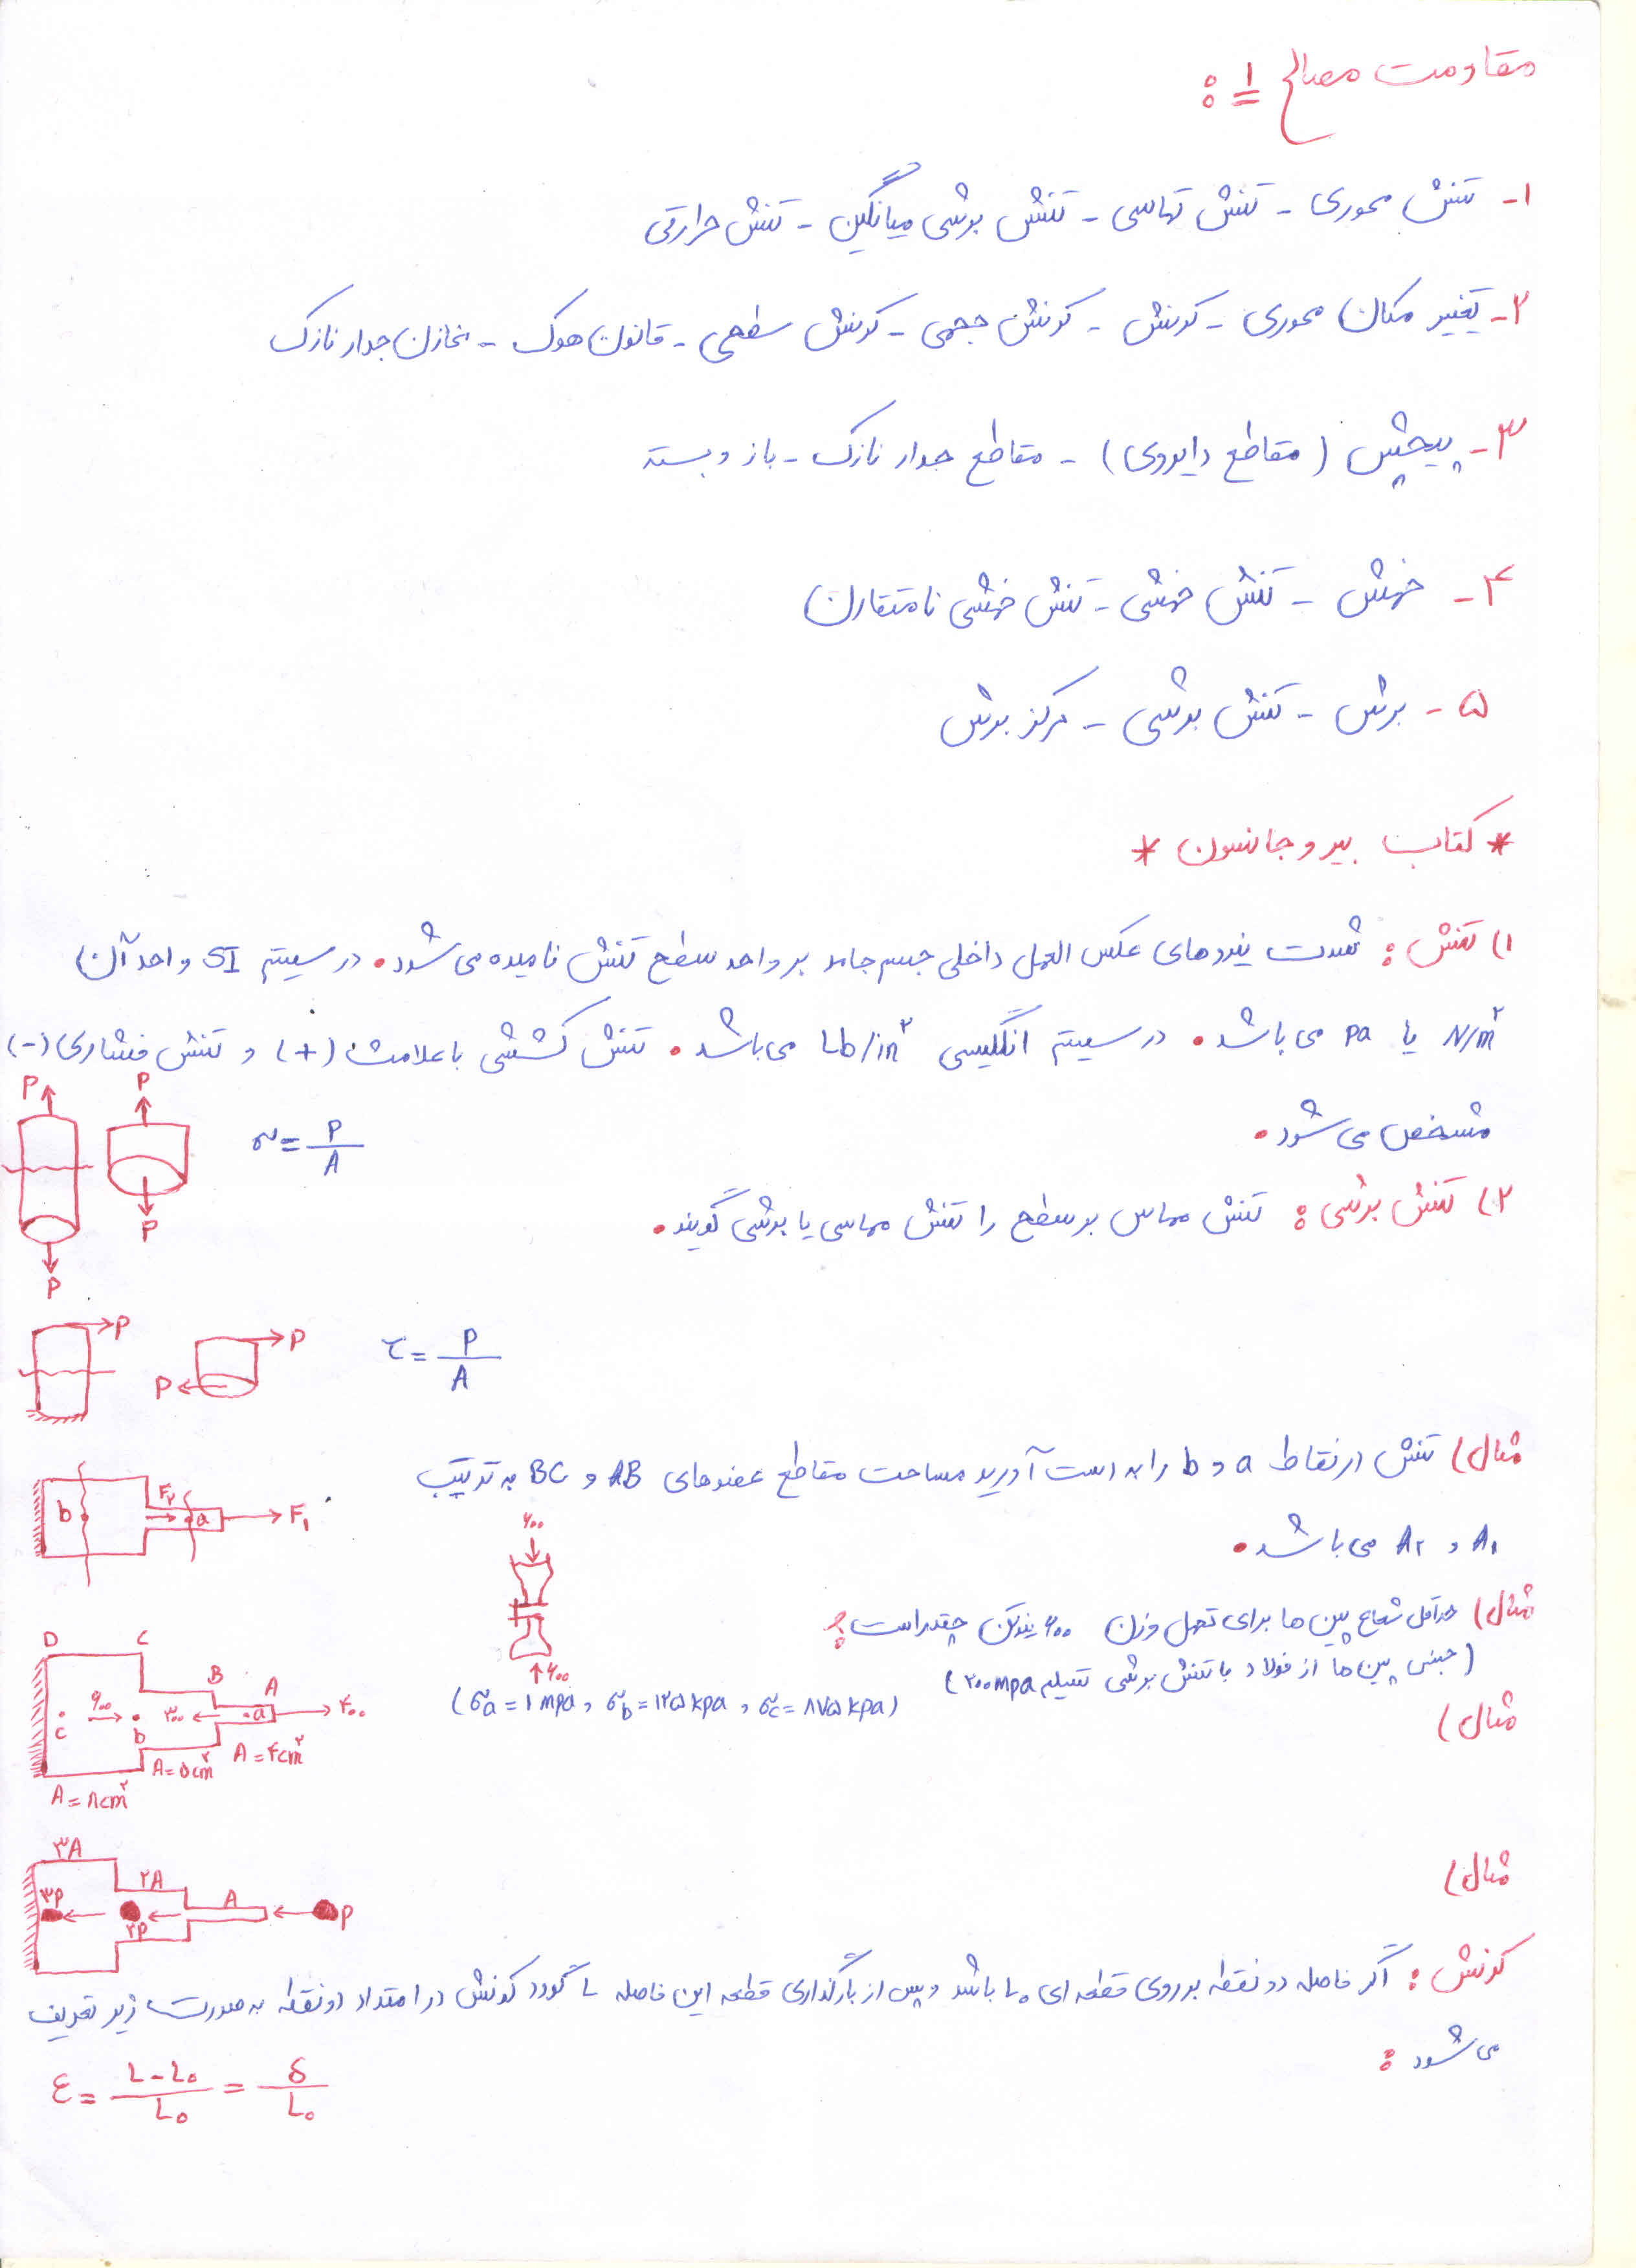 مقاومت مصالح ۱ :
۱- تنش محوری - تنش تماسی - تنش برشی میانگین - تنش حرارتی
۲- تغییر مکان محوری - کرنش - کرنش حجمی - کرنش سطحی - قانون هوک - مخازن جدار نازک
۳- پیچش (مقاطع دایروی) - مقاطع جدار نازک - باز و بسته
۴- خمش - تنش خمشی - تنش خمشی نامتقارن
۵- برش - تنش برشی - مرکز برش
* کتاب بیر و جانسون *
۱) تنش : شدت نیروهای عکس العمل داخلی جسم جامد بر واحد سطح تنش نامیده می شود. در سیستم SI واحد آن
N/m² یا pa می باشد. در سیستم انگلیسی Lb/in² می باشد. تنش کششی با علامت (+) و تنش فشاری (-)
مشخص می شود.
P P
σ = P/A
P P
۲) تنش برشی : تنش مماس بر سطح را تنش مماسی یا برشی گویند.
P P P
τ = P/A
مثال) تنش در نقاط a و b را به دست آورید مساحت مقاطع عضوهای AB و BC به ترتیب
A₁ و A₂ می باشد.
b F₂ a F₁
مثال) حداقل شعاع پین ها برای تحمل وزن ۶۰۰ نیوتن چقدر است؟
(جنس پین ها از فولاد با تنش برشی تسلیم ۲۰۰mpa)
۶۰۰
۶۰۰
مثال)
(σa = ۱ mpa , σb = ۱۲۵ kpa , σc = ۸۷۵ kpa)
D C B A
c ۹۰۰ b ۳۰۰ a ۴۰۰
A = ۸cm² A = ۵cm² A = ۴cm²
مثال)
۳A ۲A A
۳P ۲P P
کرنش : اگر فاصله دو نقطه بر روی قطعه ای L₀ باشد و پس از بارگذاری قطعه این فاصله L گردد کرنش در امتداد دو نقطه به صورت زیر تعریف
می شود :
ε = L-L₀/L₀ = δ/L₀